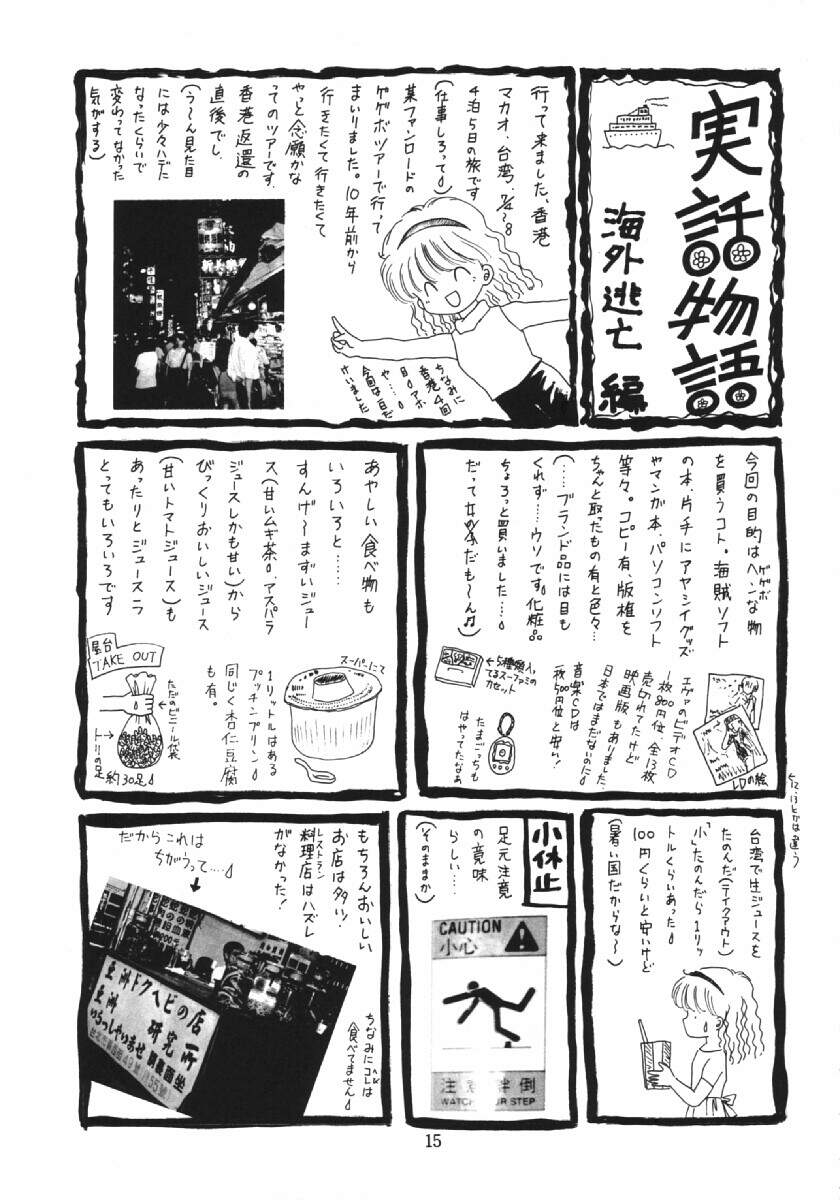 実話物語
海外逃亡編
行って来ました、香港
マカオ、台湾、7/4〜8
4泊5日の旅です
(仕事しろって)
某ファンロードの
ゲゲボツアーで行って
まいりました。10年前から
行きたくて行きたくて
やっと念願かな
ってのツアーです。
香港返還の
直後でし、
(う〜ん見た目
には少々ハデに
なったくらいで
変わってなかった
気がする)
ちなみに
香港4回
目。アホ
や…。
今回は百だ
けいました
今回の目的はヘンな物
ゲゲボ
を買うコト。海賊ソフト
の本、片手にアヤシイグッズ
やマンガ本、パソコンソフト
等々。コピー有、版権を
ちゃんと取だもの有と色々…
(……ブランド品には目も
くれず……ウソです。化粧品
ちょろっと買いました…。
だって女の子だも〜ん♫)
エヴァのビデオCD
1枚800円位、全13枚
売切れてたけど
映画版もありました
日本ではまだないのに
音楽CDは
一枚500円位と安い!
←5種類入っ
てるスーファミの
カセット
たまごっちも
はやってたなあ
LDの絵
↳12・13とかは違う
あやしい食べ物も
いろいろと……
すんげ〜まずいジュー
ス(甘いムギ茶。アスパラ
ジュースしかも甘い)から
びっくりおいしいジュース
(甘いトマトジュース)も
あったりとジュース一つ
とってもいろいろです
スーパーにて
1リットルはある
プッチンプリン。
同じく杏仁豆腐
も有。
屋台
TAKE OUT
ただのビニール袋
トリの足
約30足。
台湾で生ジュースを
たのんだ(テイクアウト)
「小」たのんだら1リッ
トルくらいあった。
100円くらいと安いけど
(暑い国だからな〜)
小休止
足元注意
の意味
らしい……
(そのままか)
CAUTION
小心
注意絆倒
WATCH YOUR STEP
もちろんおいしい
お店は多い!
レストラン
料理店はハズレ
がなかった!
だからこれは
ちがうって…。
亜洲ドクヘビの店
亜洲 研究所
いらっしゃりあせ
ちなみにコレは
食べてません。
15